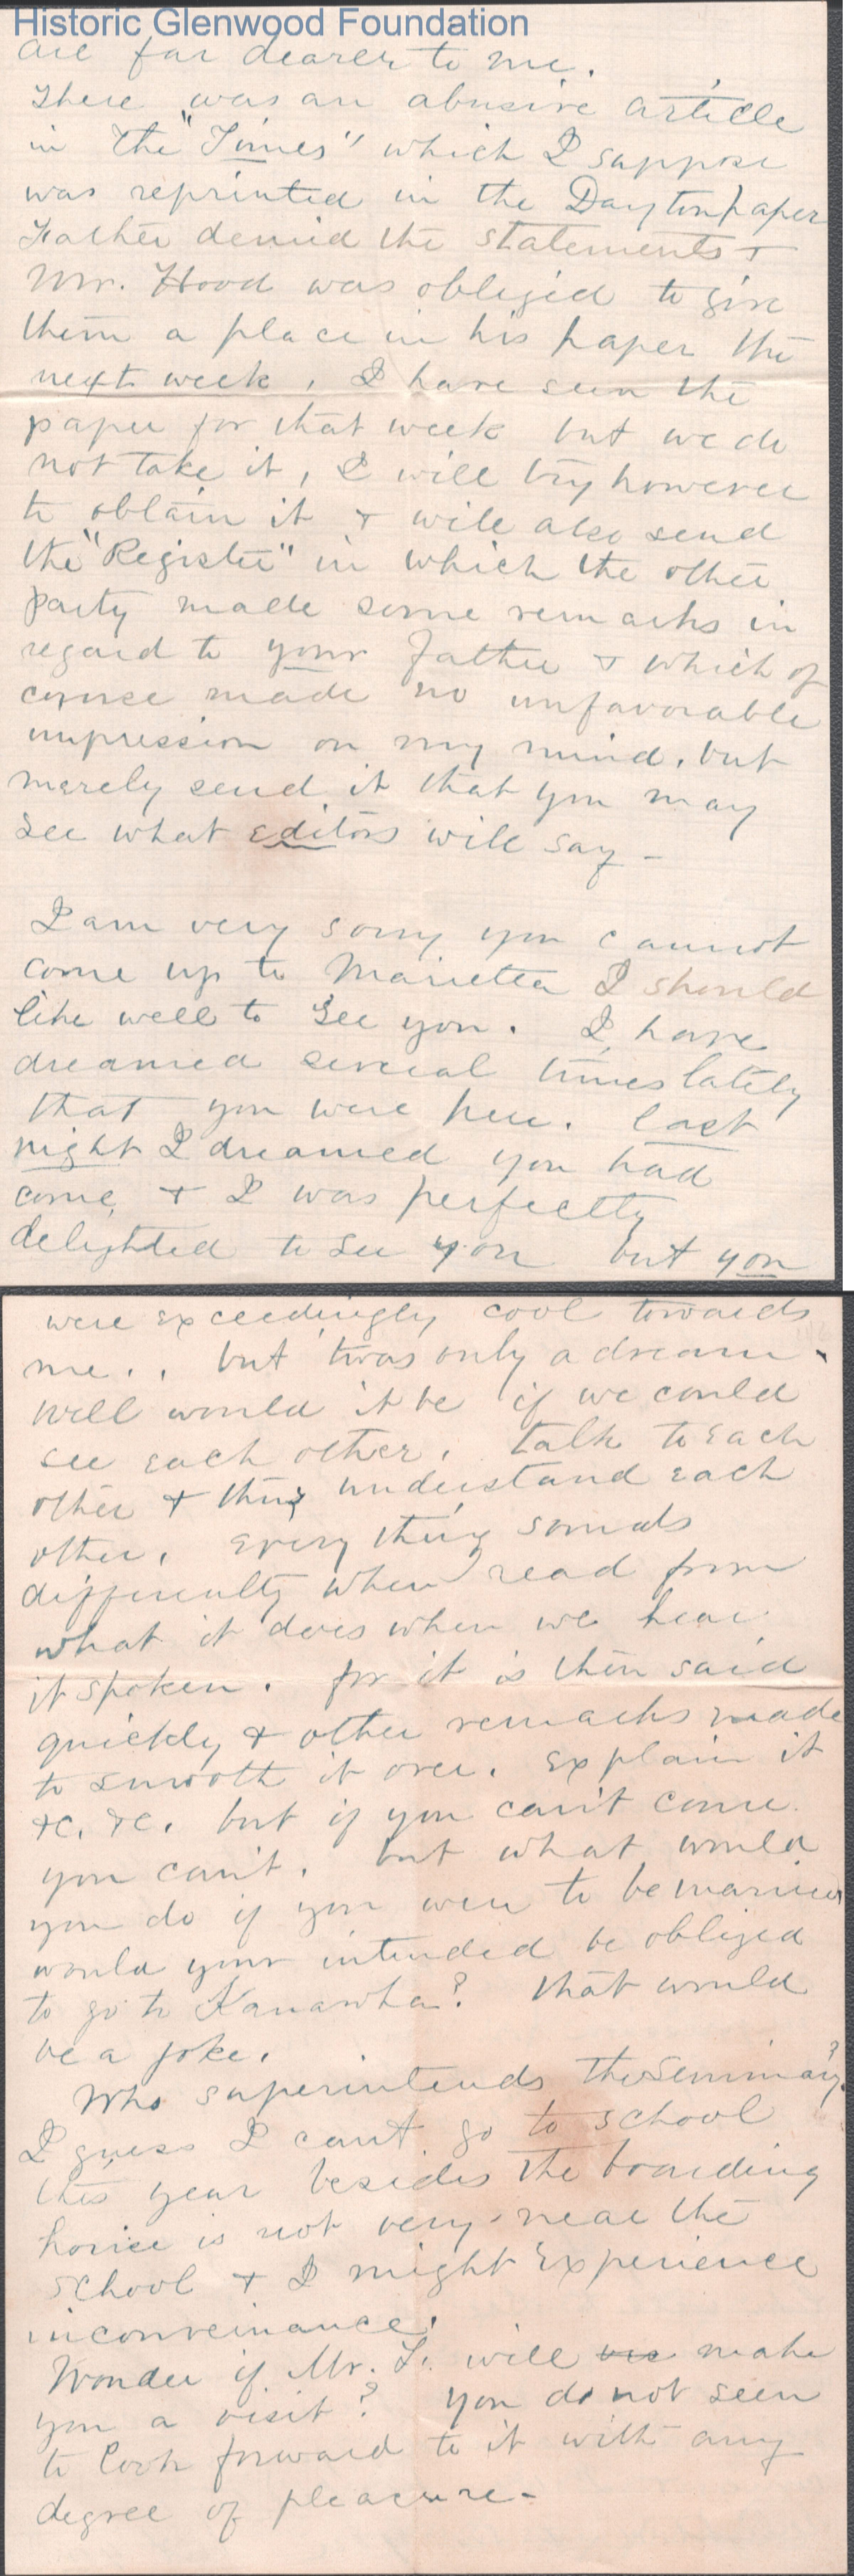 Historic Glenwood Foundation
are far dearer to me.
There was an abusive article
in the "Times" which I suppose
was reprinted in the Dayton paper
Father denied the statements &
Mr. Hood was obliged to give
them a place in his paper the
next week, I have seen the
paper for that week but we do
not take it, I will try however
to obtain it & will also send
the "Register" in which the other
party made some remarks in
regard to your father & which of
course made no unfavorable
impression on my mind, but
merely send it that you may
see what editors will say -
I am very sorry you cannot
come up to Marietta I should
like well to see you. I have
dreamed several times lately
that you were here. last
night I dreamed you had
come, & I was perfectly
delighted to see you but you
were exceedingly cool towards
me.. but 'twas only a dream.
Well would it be if we could
see each other, talk to each
other & thus understand each
other, every thing sounds
differently when read from
what it does when we hear
it spoken. for it is then said
quickly & other remarks made
to smooth it over. explain it
&c. &c. but if you can't come
you can't. but what would
you do if you were to be married
would your intended be obliged
to go to Kanawha? that would
be a joke.
Who superintends the Seminary?
I guess I can't go to school
this year besides the boarding
house is not very near the
school & I might experience
inconveinance.
Wonder if Mr. L. will make
you a visit? you do not seem
to look forward to it with any
degree of pleasure-